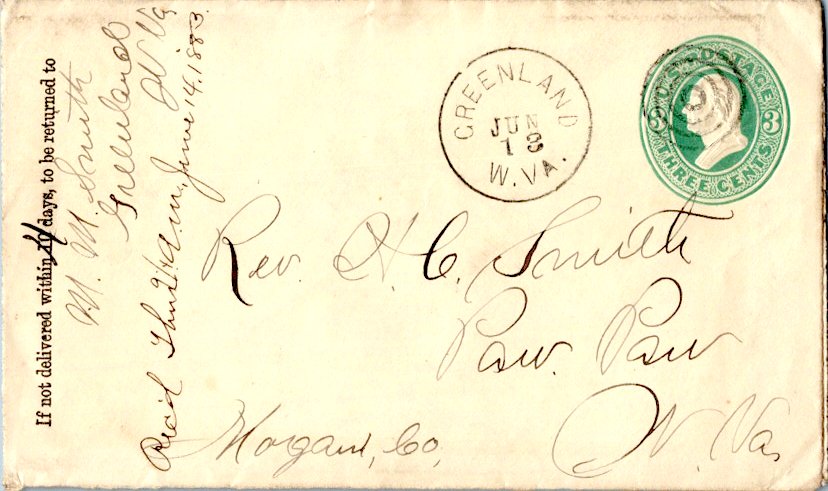 If not delivered within 4 days, to be returned to
M. M. Smith
Greenland
W Va
Rec'd A.M., June 14, 1883.
GREENLAND
JUN
13
W. VA.
U.S. POSTAGE
3 3
THREE CENTS
Rev. H. C. Smith
Paw. Paw
Morgan, Co, W. Va,